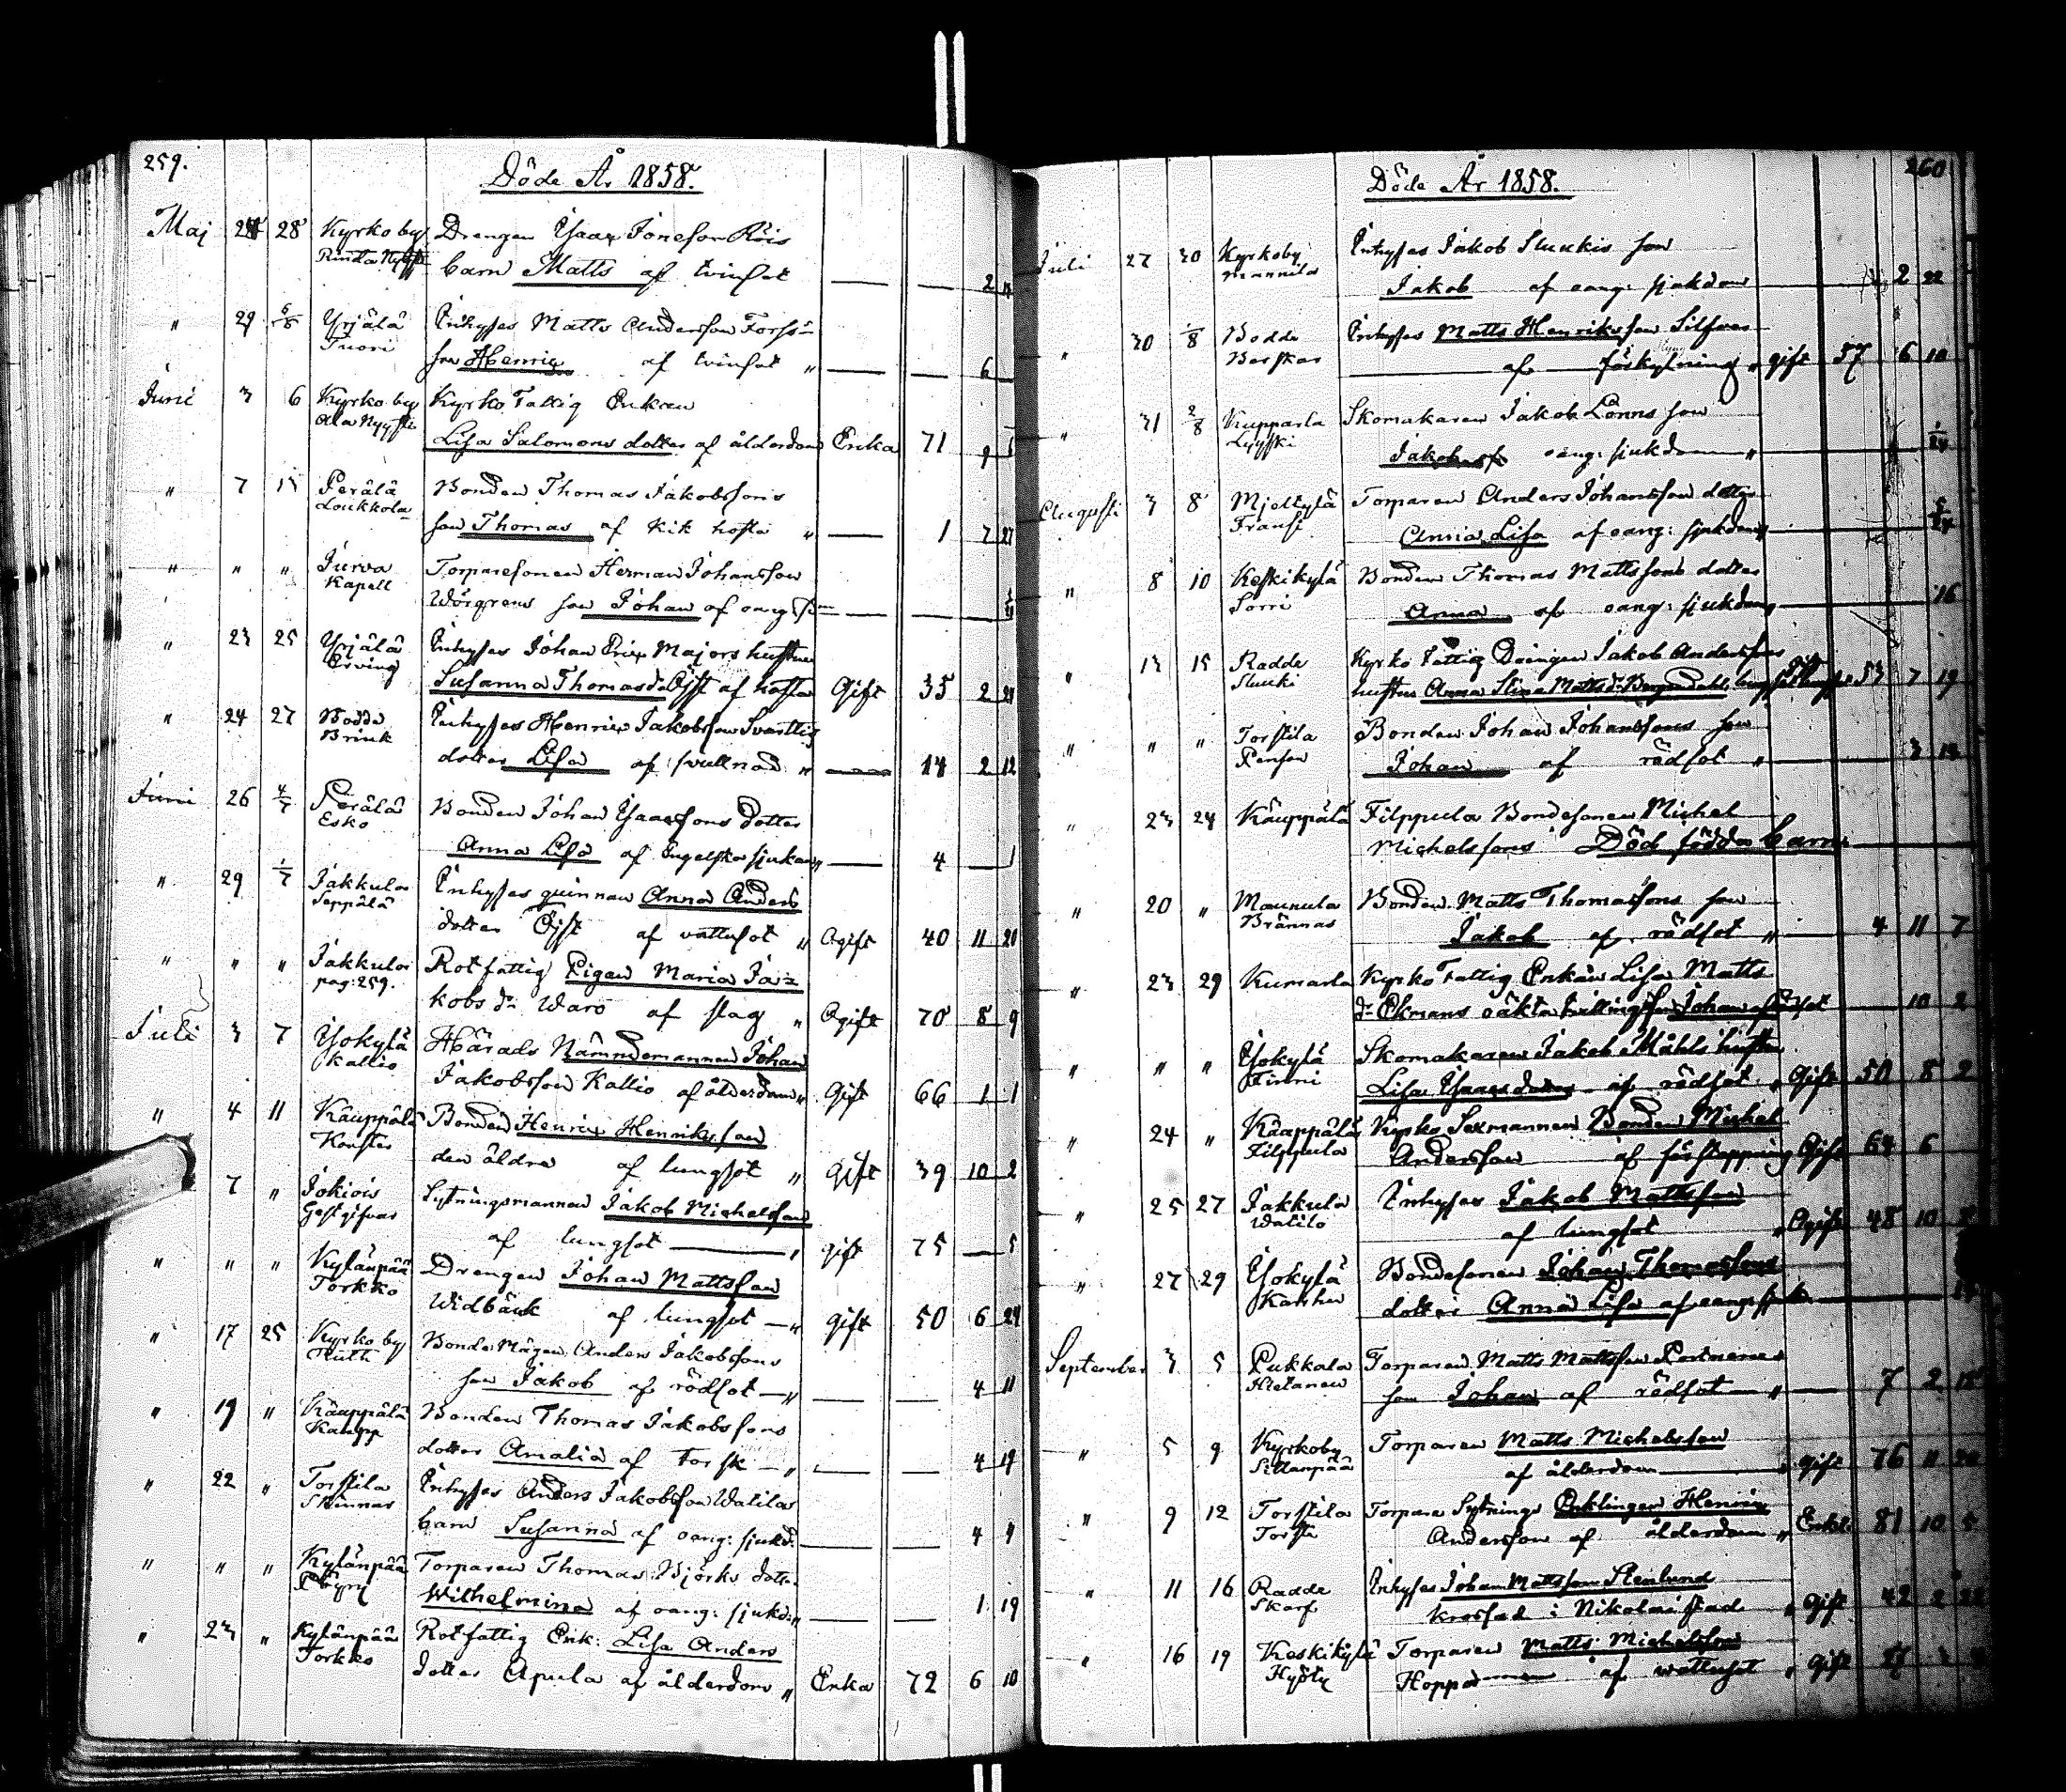 259.
Döde År 1858.
Maj 28 Kyrkoby Drengen Isaac Jonesson Röis
barn Matts af tvinsot — — 2
" 29 6/6 Yrjälä Inhyses Matts Andersson Forss
Tuori son Henric af tvinsot " — — 6
Juni 3 6 Kyrkoby Kyrko Fattig Enkan
Ala Nyysti Lisa Salomons dotter af ålderdom Enka 71 9
" 7 13 Perälä Bonden Thomas Jakobssons
Loukkola son Thomas af kik hosta " — 1 7 27
" " " Jurva Torparesonen Herman Johansson
Kapell son Johan af oang:
" 23 25 Yrjälä Inhyses Johan Eric Majors hustru
Erving Susanna Thomasdr Gift af hosta Gift 35 2 21
" 24 27 Bodde Inhyses Henric Jakobsson Svarttis
Brink dotter Lisa af svullnad " — 14 2 12
Juni 26 4/7 Perälä Bonden Johan Isaacssons dotter
Esko Anna Lisa af Engelska sjukan " — 4 — 1
" 29 1/7 Jakkula Inhyses quinnan Anna Anders
Seppälä dotter af vattusot " Ogift 40 11 20
" " " Jakkula Rotfattig Pigan Maria Ja=
pag: 259. kobs dr Waro af slag " Ogift 70 8 9
Juli 3 7 Ytokylä Härads Nämndemannen Johan
Kallio Jakobsson Kallio af ålderdom " Gift 66 1 1
" 4 11 Käuppälä Bonden Henric Henriksson
den äldre af lungsot " Gift 39 10 2
7 " Jokiois Sytningsmannen Jakob Michelsson
Gästgifvar af lungsot — " gift 75 — 5
" " " Kylänpää Drengen Johan Mattsson
Torkko Widbäck af lungsot — " gift 50 6 24
" 17 25 Kyrkoby Bonde Mågen Anders Jakobssons
Ruth son Jakob af rödsot — " — — 4 11
" 19 " Käuppälä Bonden Thomas Jakobssons
Kaupp dotter Amalia af torsk — " — — 4 19
" 22 " Torstila Inhyses Anders Jakobsson Watila
Skinnar barn Susanna af oang: sjukd. — — 4 4
" " " Kylänpää Torparen Thomas Björks dotter
Wilhelmina af oang: sjukd: " — — 1 19
" 23 " Kylänpää Rotfattig Enk: Lisa Anders
Torkko dotter Apula af ålderdom " Enka 72 6 10
260
Döde År 1858.
Juli 27 30 Kyrkoby Inhyses Jakob Sluukis son
Mannila Jakob af oang: sjukdom — 2 22
" 30 1/8 Bodde Inhyses Matts Henriksson Silfver
Berskar af förkylning " gift 57 6 10
" 31 2/8 Kupparla Skomakaren Jakob Lönns son
Lyyski Jakob af oang: sjukdom "
Augusti 3 8 Mjelkylä Torparen Anders Johansson dotter
Fransi Anna Lisa af oang: sjukdom "
" 8 10 Keskikylä Bonden Thomas Mattssons dotter
Sorri Anna af oang: sjukdom — 16
" 13 15 Radde Kyrko Fattig Drängen Jakob Anderssons
Sluuki hustru Anna Stina Matts dr 53 7 19
" " " Torstila Bonden Johan Johanssons son
Penson Johan af rödsot " 3 14
" 23 24 Käuppälä Filppula Bondesonen Michel
Michelssons Död födda barn —
" 20 " Maunula Bonden Matts Thomassons son
Brännas Jakob af rödsot " 4 11 7
" 23 29 Kumarla Kyrko Fattig Enkan Lisa Matts
dr Ekmans oäkta tvilling son Johan af rödsot 10 2
" " " Ytokylä Skomakaren Jakob Ståhls hustru
Finni Lisa Isaacs dotter af rödsot " Gift 50 8 2
" 24 " Käuppälä Kyrko Sexmannen Bonden Michel
Filppula Andersson af förstoppning Gift 64 6
" 25 27 Jakkula Inhyses Jakob Mattsson
Watila af lungsot " Ogift 48 10
" 27 29 Ytokylä Bondesonen Johan Thomassons
Karhu dotter Anna Lisa af oang: sjukd.
September 3 5 Pukkala Torparen Matts Mattsson
Hietanen son Johan af rödsot " — 7 2 15
" 5 9 Kyrkoby Torparen Matts Michelsson
Sillanpää af ålderdom — " gift 76 11
" 9 12 Torstila Torpare Sytnings Enklingen Henric
Torsti Andersson af ålderdom " Enkl: 81 10 5
" 11 16 Radde Inhyses Johan Mattsson Stenlund
Skarf krossad i Nikolaistad " Gift 42 2
" 16 19 Keskikylä Torparen Matts Michelsson
Hyöty Hoppa af wattusot " Gift